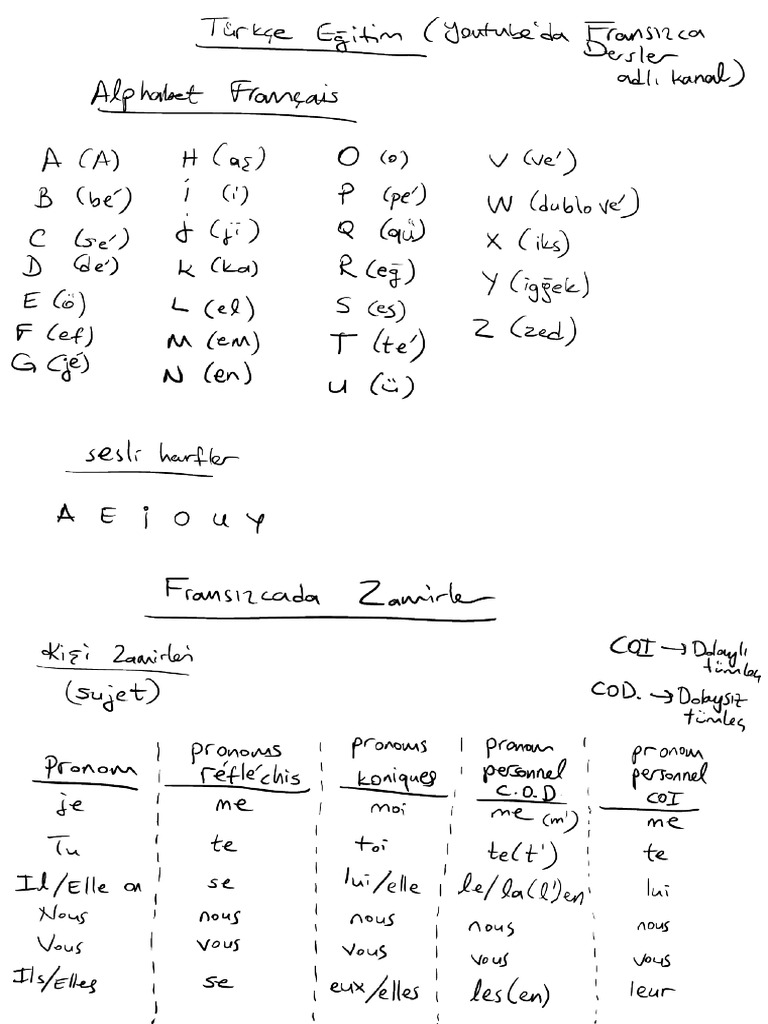 Türkçe Eğitim (Youtube'da Fransızca
Dersler
adlı kanal)
Alphabet Français
A (A) H (aş) O (o) V (ve')
B (be') İ (i') P (pe') W (dublove')
C (se') J (ji) Q (qü) X (iks)
D (de') K (ka) R (eğ) Y (igğek)
E (ö) L (el) S (es) Z (zed)
F (ef) M (em) T (te')
G (jé) N (en) U (ü)
sesli harfler
A E İ O U Y
Fransızcada Zamirler
Kişi Zamirleri
(sujet)
COI → Dolaylı
tümleç
COD. → Dolaysız
tümleç
Pronom pronoms réfléchis pronoms koniques pronom personnel C.O.D pronom personnel COI
je me moi me (m') me
Tu te toi te(t') te
Il/Elle on se lui/elle le/la(l')en lui
Nous nous nous nous nous
Vous vous vous vous vous
Ils/Elles se eux/elles les(en) leur